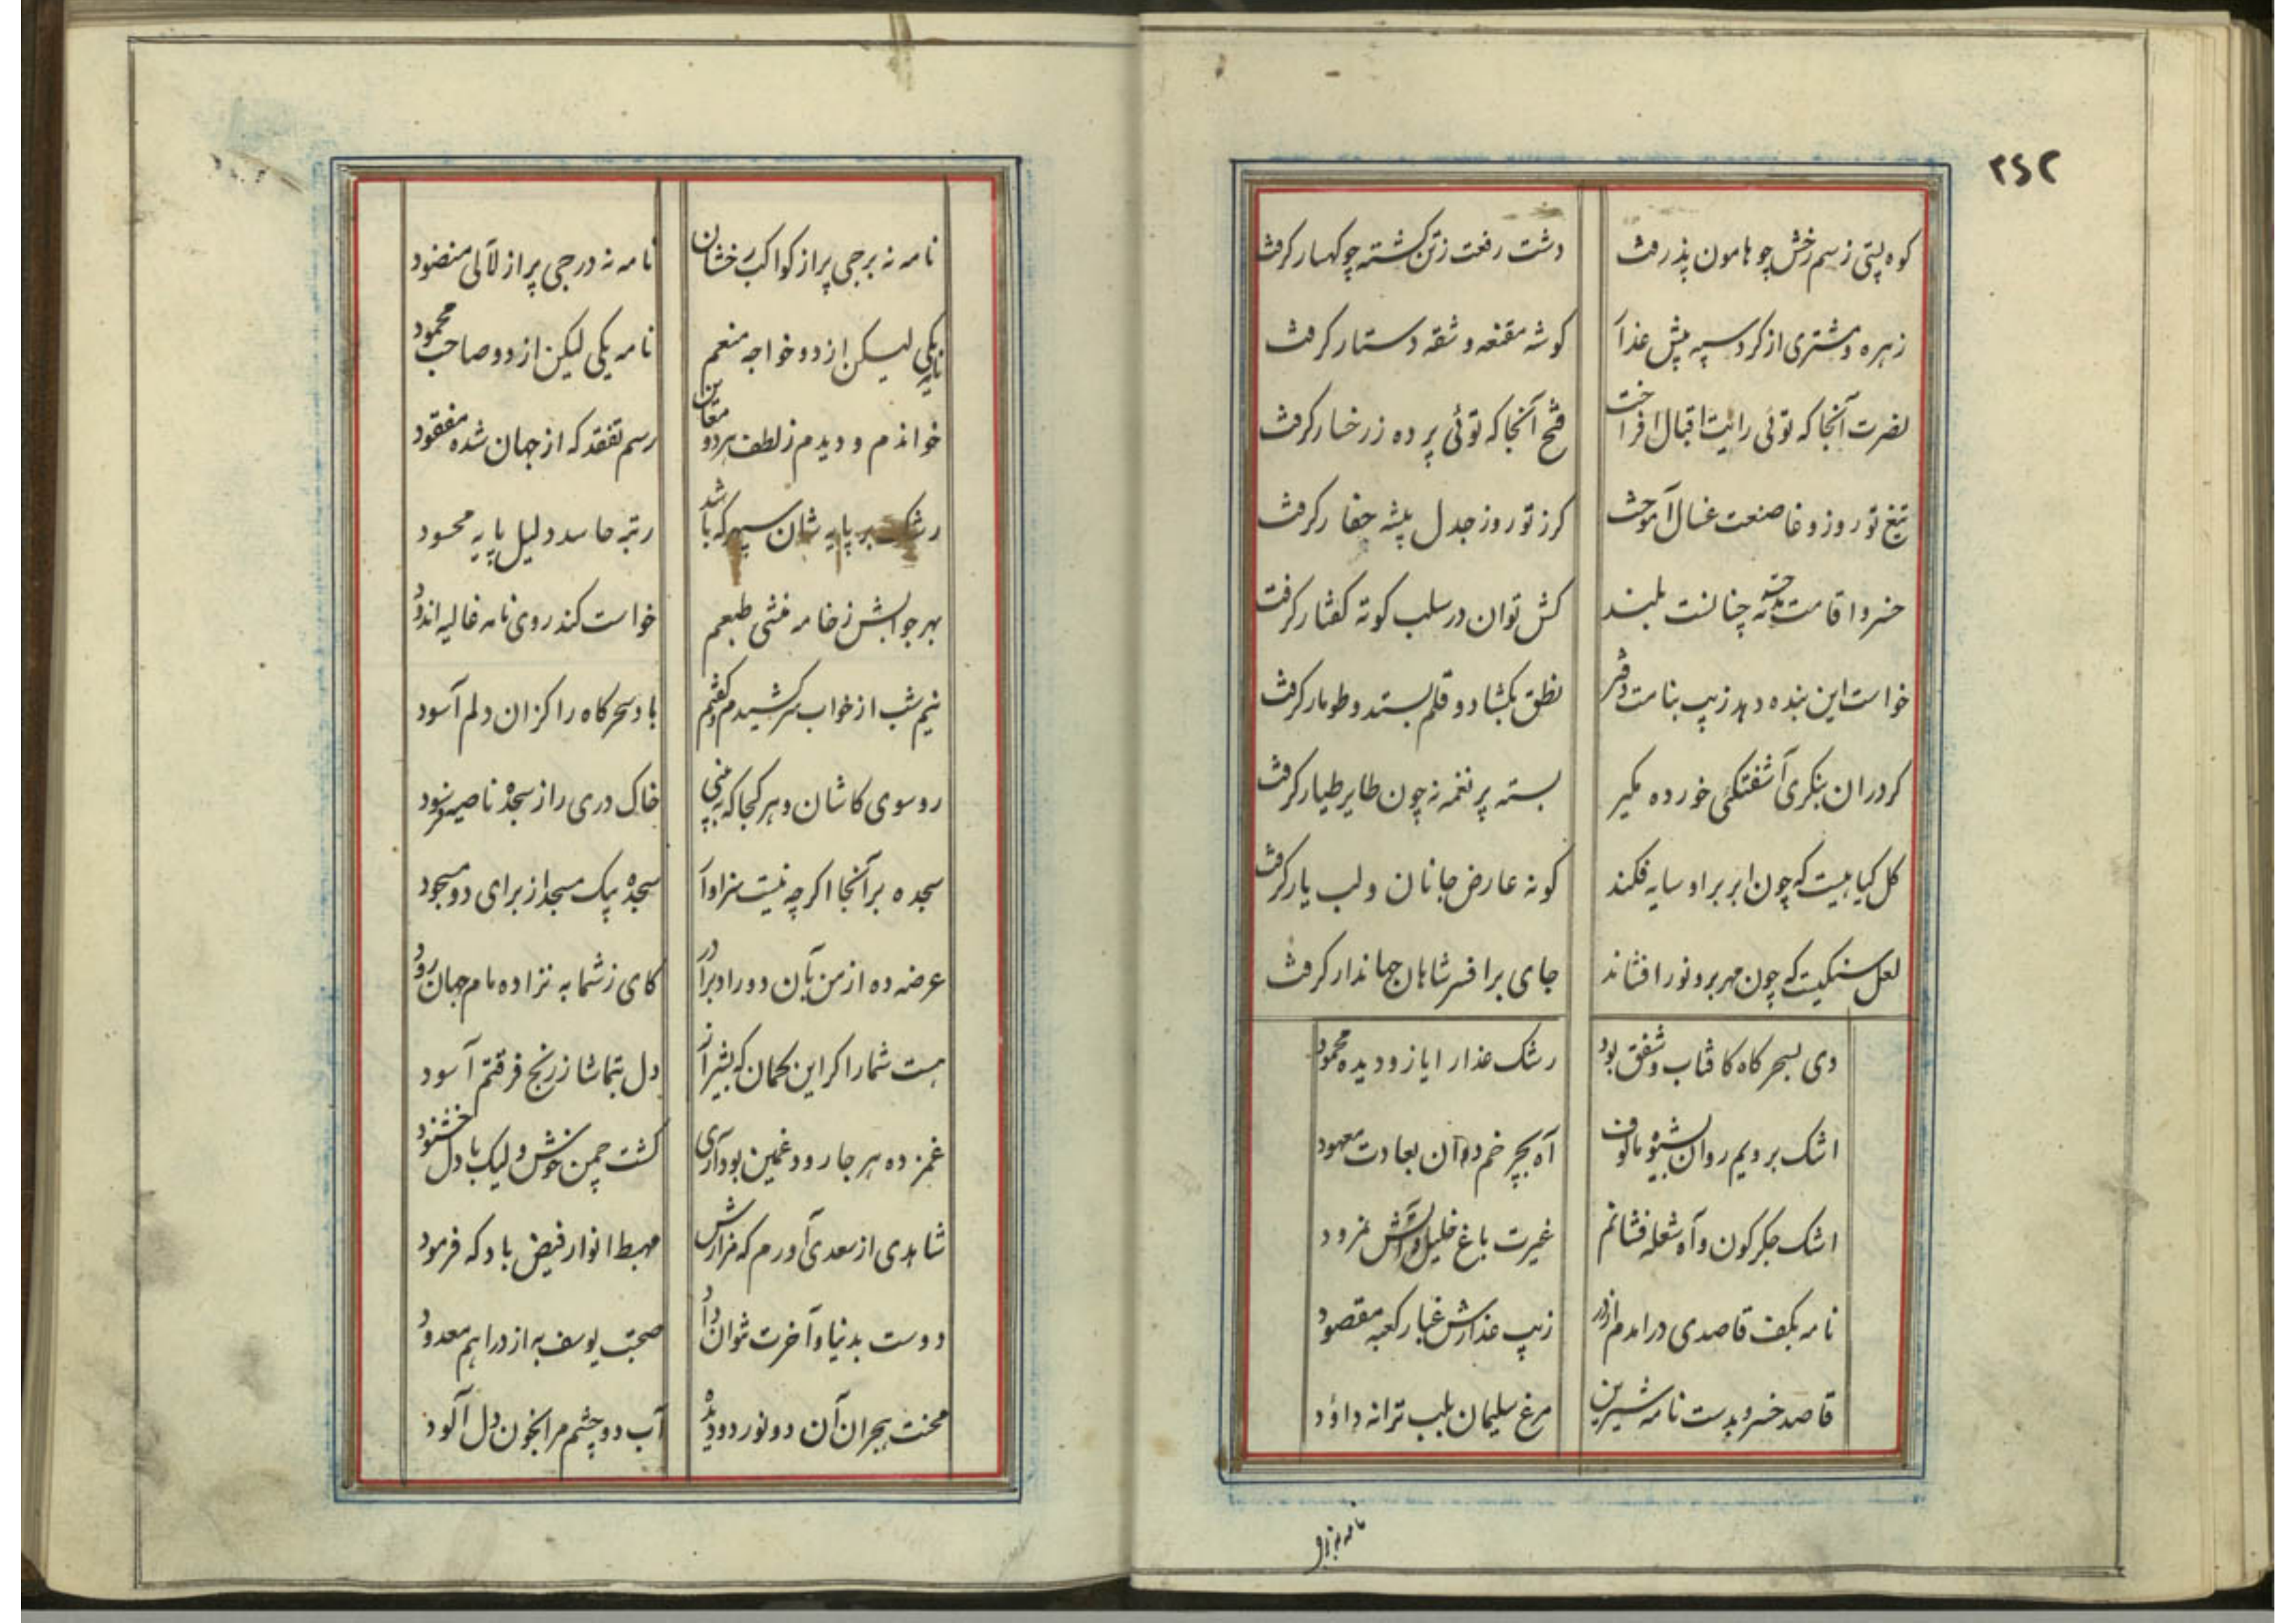 ۲۶۲
کوه پستی ز سم رخش چو هامون پذرفت دشت رفعت ز تن کشته چو کهسار کرفت
زهره و مشتری از کرد سپه پیش عذار کوشه مقنعه و شقه دستار کرفت
نصرت آنجا که توئی رایت اقبال افراخت فتح آنجا که توئی پرده ز رخسار کرفت
تیغ تو روز وغا صنعت غسال آموخت کرز تو روز جدل پیشه حفار کرفت
خسروا قامت مدحت نه چنانست بلند کش توان در سلب کوته کفتار کرفت
خواست این بنده دهد زیب بنامت دفتر نطق بکشاد و قلم بستد و طومار کرفت
کر در ان بنکری آشفتکئی خورده مکیر بسته پر نغمه نه چون طایر طیار کرفت
کل کیاهیست که چون ابر بر او سایه فکند کونه عارض جانان و لب یار کرفت
لعل سنکیست که چون مهر برو نور افشاند جای بر افسر شاهان جهاندار کرفت
دی بسحرکاه کافتاب و شفق بود رشک عذار ایاز و دیده محمود
اشک برویم روان بشیوه مالوف آه بچرخم دوان بعادت معهود
اشک جکرکون و آه شعله فشانم غیرت باغ خلیل و آتش نمرود
نامه بکف قاصدی درامدم از در زیب عذارش غبار کعبه مقصود
قاصد خسرو بدست نامه شیرین مرغ سلیمان بلب ترانه داؤد
نامه نه برجی
نامه نه برجی پر از کواکب رخشان نامه نه درجی پر از لآلی منضود
نامه یکی لیکن از دو خواجه منعم نامه یکی لیکن از دو صاحب محمود
خواندم و دیدم ز لطف هر دو معاین رسم تفقد که از جهان شده مفقود
رشک بر پایه شان سپهر که باشد رتبه حاسد دلیل پایه محسود
بهر جوابش ز خامه منشی طبعم خواست کند روی نامه غالیه اندود
نیم شب از خواب سر کشیدم و کفتم باد سحرکاه را کزان دلم آسود
رو سوی کاشان و هر کجا که ببینی خاک دری را ز سجده ناصیه فرسود
سجده بر آنجا اکرچه نیست سزاوار سجده بیک مسجد از برای دو مسجود
عرضه ده از من بآن دو راد برادر کای ز شما به نزاده مام جهان رود
هست شما را کر این کمان که بشیراز دل بتماشا ز رنج فرقتم آسود
غمزده هر جا رود غمین بود آری کشت چمن خوش ولیک با دل خشنود
شاهدی از سعدی آورم که مزارش مهبط انوار فیض باد که فرمود
دوست بدنیا و آخرت نتوان داد صحبت یوسف به از دراهم معدود
محنت هجران آن دو نور دو دیده آب دو چشم مرا بخون دل آلود